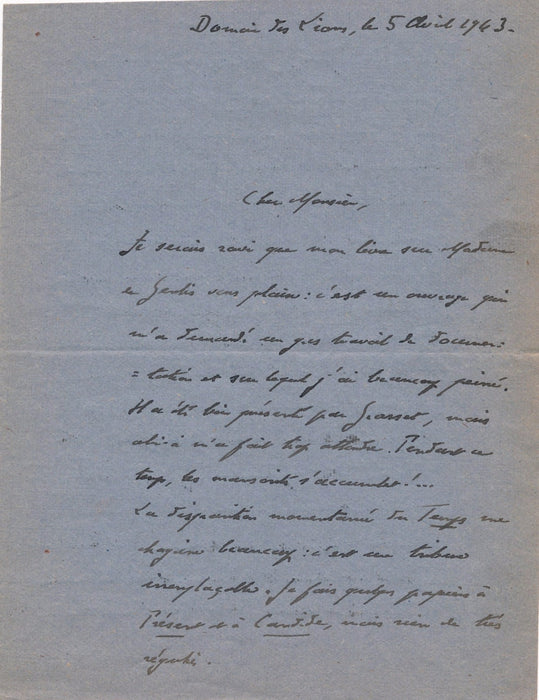 Domaine des Lions, le 5 Avril 1943.
Cher Monsieur,
Je serais ravi que mon livre sur Madame
de Genlis vous plaise : c'est un ouvrage qui
m'a demandé un gros travail de documen=
=tation et sur lequel j'ai beaucoup peiné.
Il a été bien présenté par Grasset, mais
celui-ci m'a fait trop attendre. Pendant ce
temps, les manuscrits s'accumulent !...
La disparition momentanée du Temps me
chagrine beaucoup : c'est une tribune
irremplaçable. Je fais quelques papiers à
Présent et à Candide, mais rien de très
régulier.